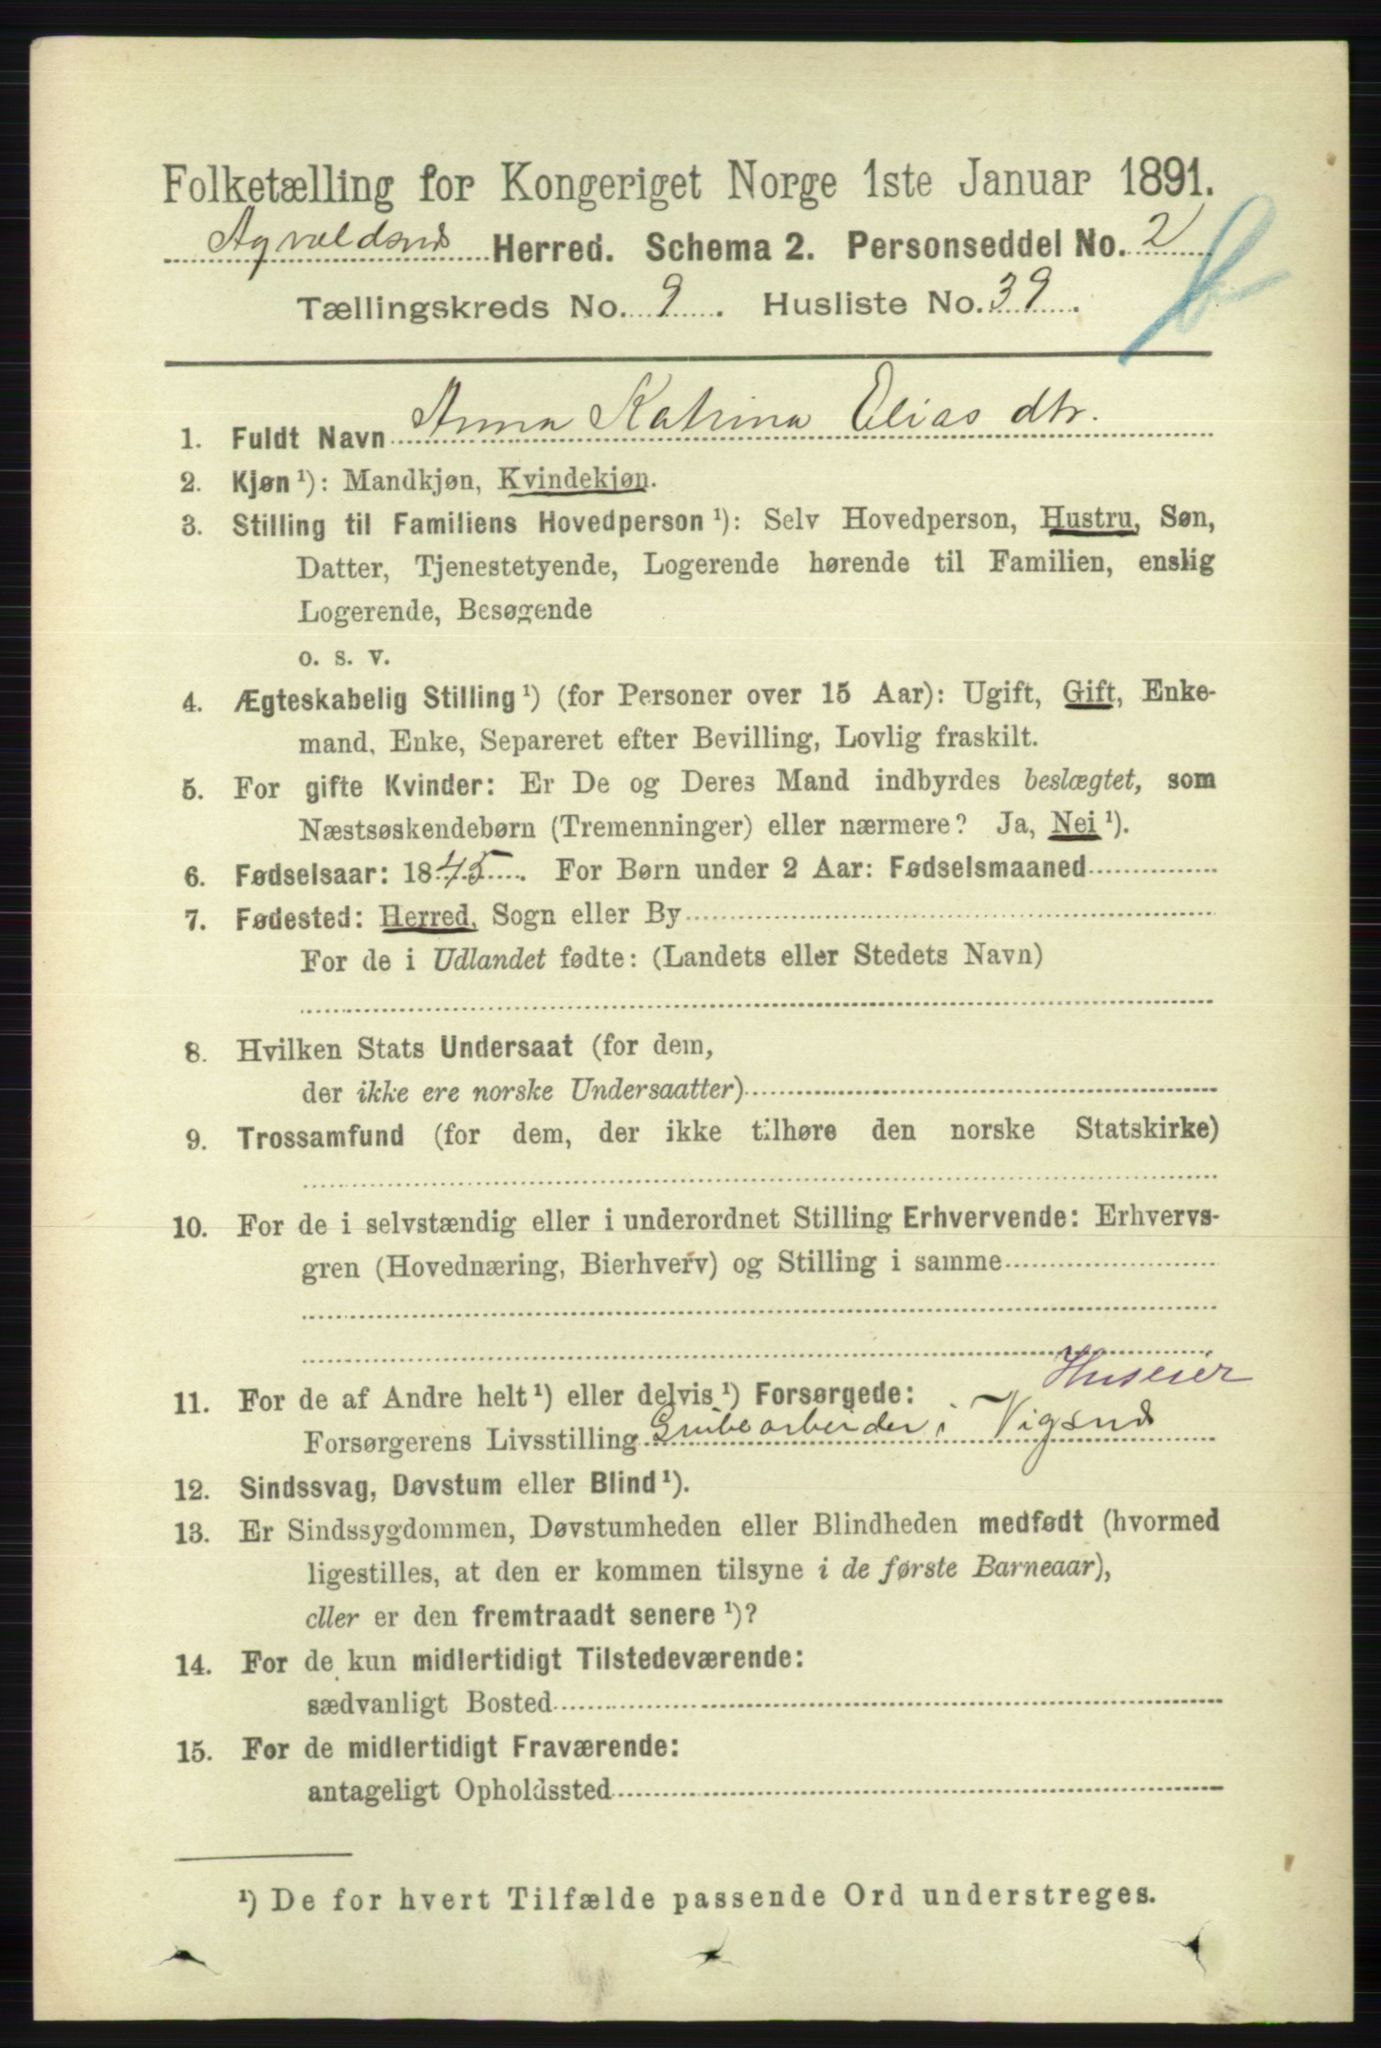 Folketælling for Kongeriget Norge 1ste Januar 1891.
Agvaldsnes Herred. Schema 2. Personseddel No. 2
Tællingskreds No. 9. Husliste No. 39.
Anna Katrina Elias dtr.
1. Fuldt Navn
2. Kjøn ¹): Mandkjøn, Kvindekjøn.
3. Stilling til Familiens Hovedperson ¹): Selv Hovedperson, Hustru, Søn,
Datter, Tjenestetyende, Logerende hørende til Familien, enslig
Logerende, Besøgende
o. s. v.
4. Ægteskabelig Stilling ¹) (for Personer over 15 Aar): Ugift, Gift, Enke-
mand, Enke, Separeret efter Bevilling, Lovlig fraskilt.
5. For gifte Kvinder: Er De og Deres Mand indbyrdes beslægtet, som
Næstsøskendebørn (Tremenninger) eller nærmere? Ja, Nei ¹).
6. Fødselsaar: 1845. For Børn under 2 Aar: Fødselsmaaned
7. Fødested: Herred, Sogn eller By
For de i Udlandet fødte: (Landets eller Stedets Navn)
8. Hvilken Stats Undersaat (for dem,
der ikke ere norske Undersaatter)
9. Trossamfund (for dem, der ikke tilhøre den norske Statskirke)
10. For de i selvstændig eller i underordnet Stilling Erhvervende: Erhvervs-
gren (Hovednæring, Bierhverv) og Stilling i samme
Huseier
11. For de af Andre helt ¹) eller delvis ¹) Forsørgede:
Forsørgerens Livsstilling Grubearbeider i Vigsnes
12. Sindssvag, Døvstum eller Blind ¹).
13. Er Sindssygdommen, Døvstumheden eller Blindheden medfødt (hvormed
ligestilles, at den er kommen tilsyne i de første Barneaar),
eller er den fremtraadt senere ¹)?
14. For de kun midlertidigt Tilstedeværende:
sædvanligt Bosted
15. For de midlertidigt Fraværende:
antageligt Opholdssted
¹) De for hvert Tilfælde passende Ord understreges.